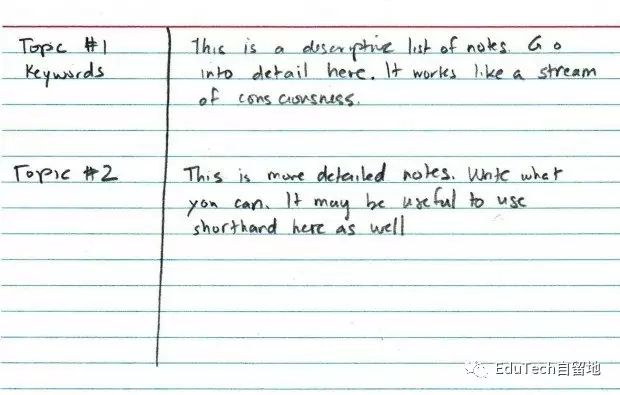 Topic #1
Keywords
This is a descriptive list of notes. Go
into detail here. It works like a stream
of consciousness.
Topic #2
This is more detailed notes. Write what
you can. It may be useful to use
shorthand here as well
EduTech自留地